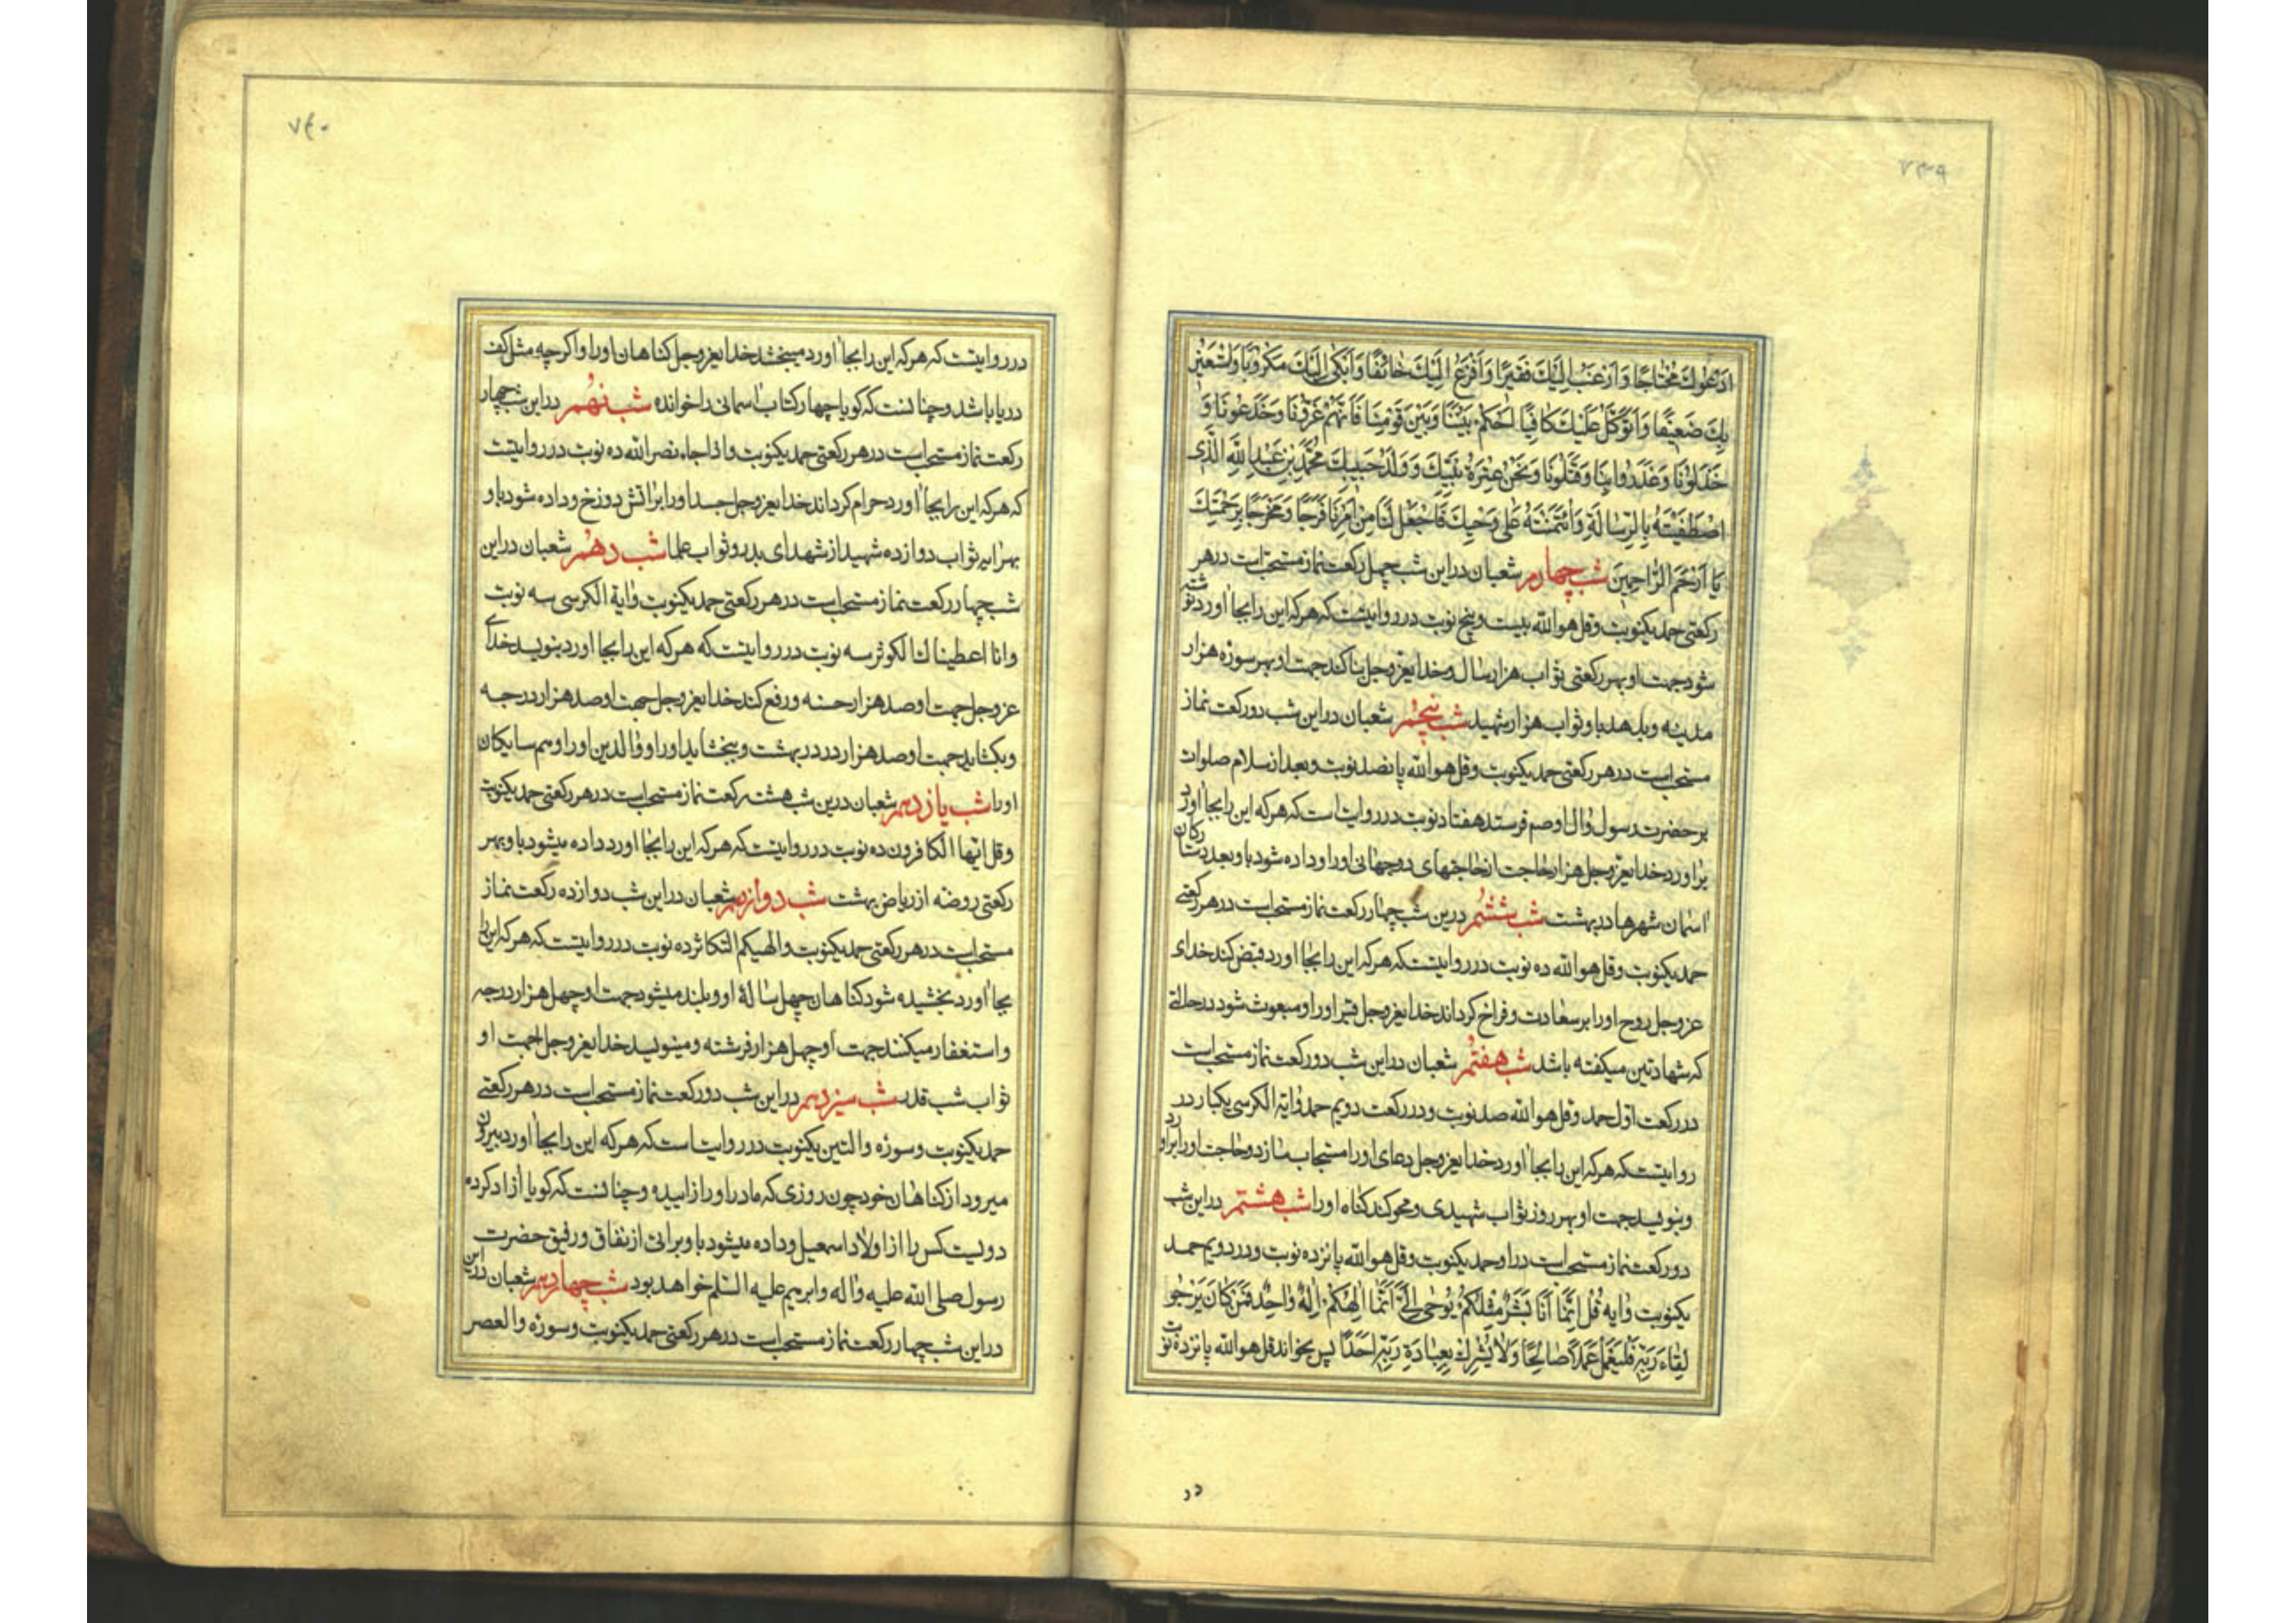 ٧٣٩
ادعوك محتاجا وارغب اليك فقيرا وافزع اليك خائفا وابكى اليك مكروبا واستعين
بك ضعيفا واتوكل عليك كافيا احكم بيننا وبين قومنا فانهم غرونا وخدعونا و
خذلونا وغدروا بنا وقتلونا ونحن عترة نبيك وولد حبيبك محمد بن عبد الله الذى
اصطفيته بالرسالة وائتمنته على وحيك فاجعل لنا من امرنا فرجا ومخرجا برحمتك
يا ارحم الراحمين شب چهارم شعبان دراين شب چهل ركعت نماز مستحب است درهر
ركعتى حمد يكنوبت وقل هو الله بيست وپنج نوبت در روايتست كه هركه اين رابجا اورد نوشته
شود جهت او بهر ركعتى ثواب هزار سال وخدايعزوجل بنا كند جهت او بهر سوره هزار
مدينه وبدهد باو ثواب هزار شهيد شب پنجم شعبان دراين شب دو ركعت نماز
مستحب است درهر ركعتى حمد يكنوبت وقل هو الله پانصد نوبت وبعد از سلام صلوات
برحضرت رسول وال او صم فرستد هفتاد نوبت در روايات است كه هركه اين رابجا اورد
براورد خدايعزوجل هزار حاجت از حاجتهاى دوجهانى اورا وداده شود باو بعدد ستارگان
اسمان شهرها در بهشت شب ششم درين شب چهار ركعت نماز مستحب است درهر ركعتى
حمد يكنوبت وقل هو الله ده نوبت در روايتست كه هركه اين رابجا اورد قبض كند خداى
عزوجل روح اورا بر سعادت وفراخ كرداند خدايعزوجل قبر اورا ومبعوث شود درحالتى
كه شهادتين ميكفته باشد شب هفتم شعبان دراين شب دو ركعت نماز مستحب است
در ركعت اول حمد وقل هو الله صد نوبت ودر ركعت دويم حمد واية الكرسى يكبار در
روايتست كه هركه اين رابجا اورد خدايعزوجل دعاى اورا مستجاب سازد وحاجت اورا براورد
وبنويسد جهت او بهر روز ثواب شهيدى ومحو كند كناه اورا شب هشتم دراين شب
دو ركعت نماز مستحب است در او حمد يكنوبت وقل هو الله پانزده نوبت ودر دويم حمد
يكنوبت وايه قل انما انا بشر مثلكم يوحى الى انما الهكم اله واحد فمن كان يرجو
لقاء ربه فليعمل عملا صالحا ولا يشرك بعبادة ربه احدا پس بخواند قل هو الله پانزده نوبت
در
٧٤٠
در روايتست كه هركه اين رابجا اورد ميبخشد خدايعزوجل كناهان اورا واكرچه مثل كف
دريا باشد وچنانست كه كويا چهار كتاب اسمانى را خوانده شب نهم دراين شب چهار
ركعت نماز مستحب است درهر ركعتى حمد يكنوبت واذا جاء نصر الله ده نوبت در روايتست
كه هركه اين رابجا اورد حرام كرداند خدايعزوجل جسد اورا براتش دوزخ وداده شود باو
بهر ايه ثواب دوازده شهيد از شهداى بدر وثواب علما شب دهم شعبان دراين
شب چهار ركعت نماز مستحب است درهر ركعتى حمد يكنوبت واية الكرسى سه نوبت
وانا اعطيناك الكوثر سه نوبت در روايتست كه هركه اين رابجا اورد بنويسد خداى
عزوجل جهت او صد هزار حسنه ورفع كند خدايعزوجل جهت او صد هزار درجه
وبكشايد جهت او صد هزار در در بهشت وببخشايد اورا ووالدين اورا وهمسايكان
اورا شب يازدهم شعبان درين شب هشت ركعت نماز مستحب است درهر ركعتى حمد يكنوبت
وقل ايها الكافرون ده نوبت در روايتست كه هركه اين رابجا اورد داده ميشود باو بهر
ركعتى روضه از رياض بهشت شب دوازدهم شعبان دراين شب دوازده ركعت نماز
مستحب است درهر ركعتى حمد يكنوبت والهيكم التكاثر ده نوبت در روايتست كه هركه اين را
بجا اورد بخشيده شود كناهان چهل ساله او وبلند ميشود جهت او چهل هزار درجه
واستغفار ميكنند جهت او چهل هزار فرشته ومينويسد خدايعزوجل جهت او
ثواب شب قدر شب سيزدهم دراين شب دو ركعت نماز مستحب است درهر ركعتى
حمد يكنوبت وسوره والتين يكنوبت در روايات است كه هركه اين رابجا اورد بيرون
ميرود از كناهان خود چون روزى كه مادر اورا زاييده وچنانست كه كويا ازاد كرده
دويست كس را از اولاد اسمعيل وداده ميشود باو براتى از نفاق ورفيق حضرت
رسول صلى الله عليه واله وابرهيم عليه السلم خواهد بود شب چهاردهم شعبان دراين
دراين شب چهار ركعت نماز مستحب است درهر ركعتى حمد يكنوبت وسوره والعصر